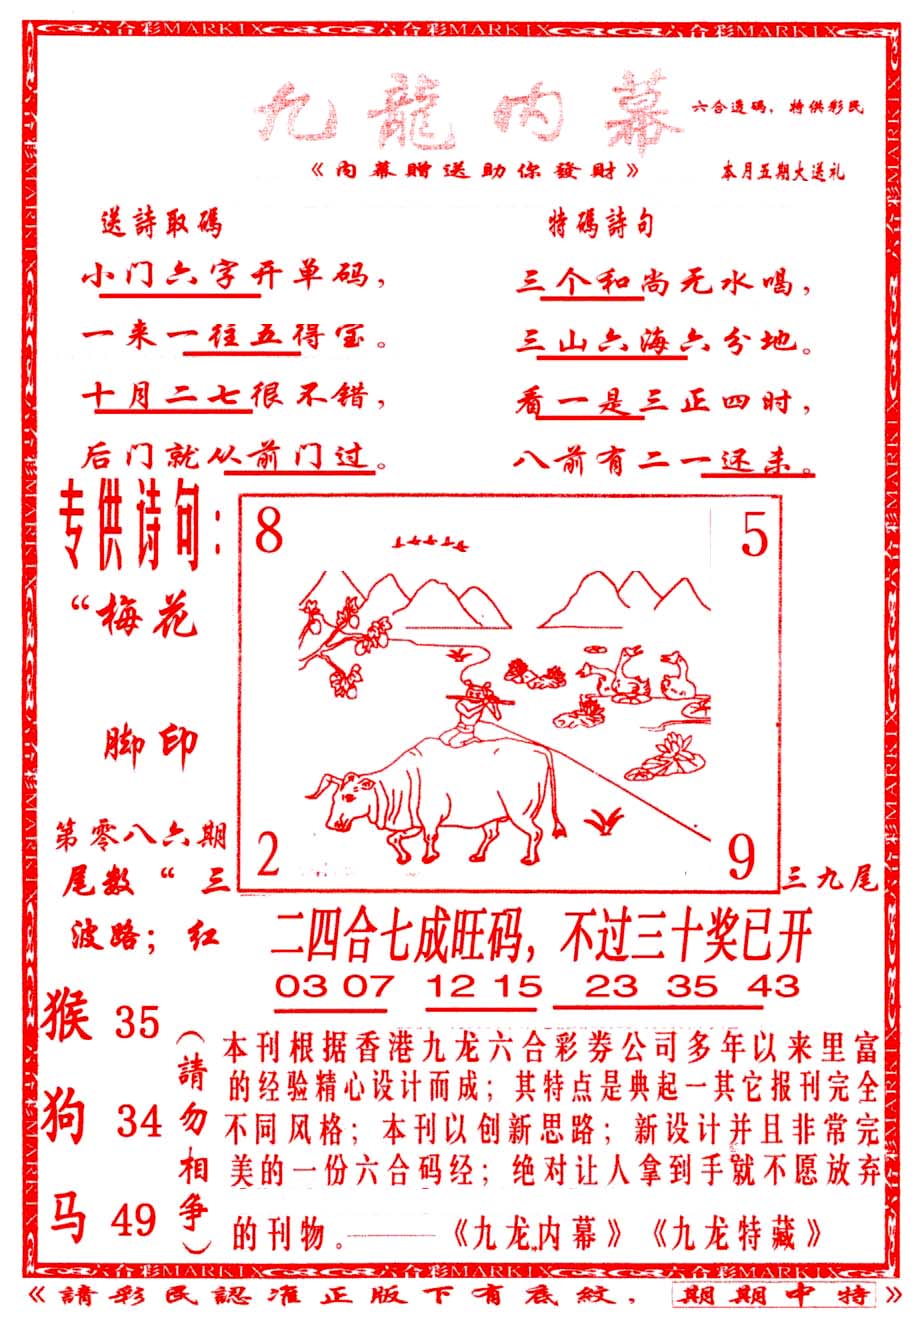 六合彩MARKIX 六合彩MARKIX 六合彩MARKIX
九龍内幕
六合透碼，特供彩民
《内幕贈送助你發財》
本月五期大送礼
送詩取碼
小门六字开单码，
一来一往五得宝。
十月二七很不错，
后门就从前门过。
特碼詩句
三个和尚无水喝，
三山六海六分地。
看一是三正四时，
八前有二一还未。
专供诗句：
“梅花
脚印
第零八六期
尾数“三
波路；红
8
5
2
9
三九尾
二四合七成旺码，不过三十奖已开
03 07 12 15 23 35 43
猴 35
狗 34
马 49
（請勿相争）
本刊根据香港九龙六合彩券公司多年以来里富
的经验精心设计而成；其特点是典起一其它报刊完全
不同风格；本刊以创新思路；新设计并且非常完
美的一份六合码经；绝对让人拿到手就不愿放弃
的刊物。——《九龙内幕》《九龙特藏》
六合彩MARKIX 六合彩MARKIX 六合彩MARKIX
《請彩民認准正版下有底紋，期期中特》